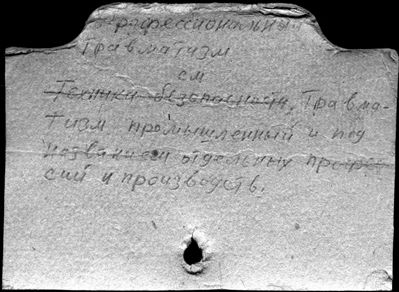 Профессиональный
травматизм
см
Техники безопасности, Травма-
тизм промышленный и под
названием отдельных профес
сий и производств.